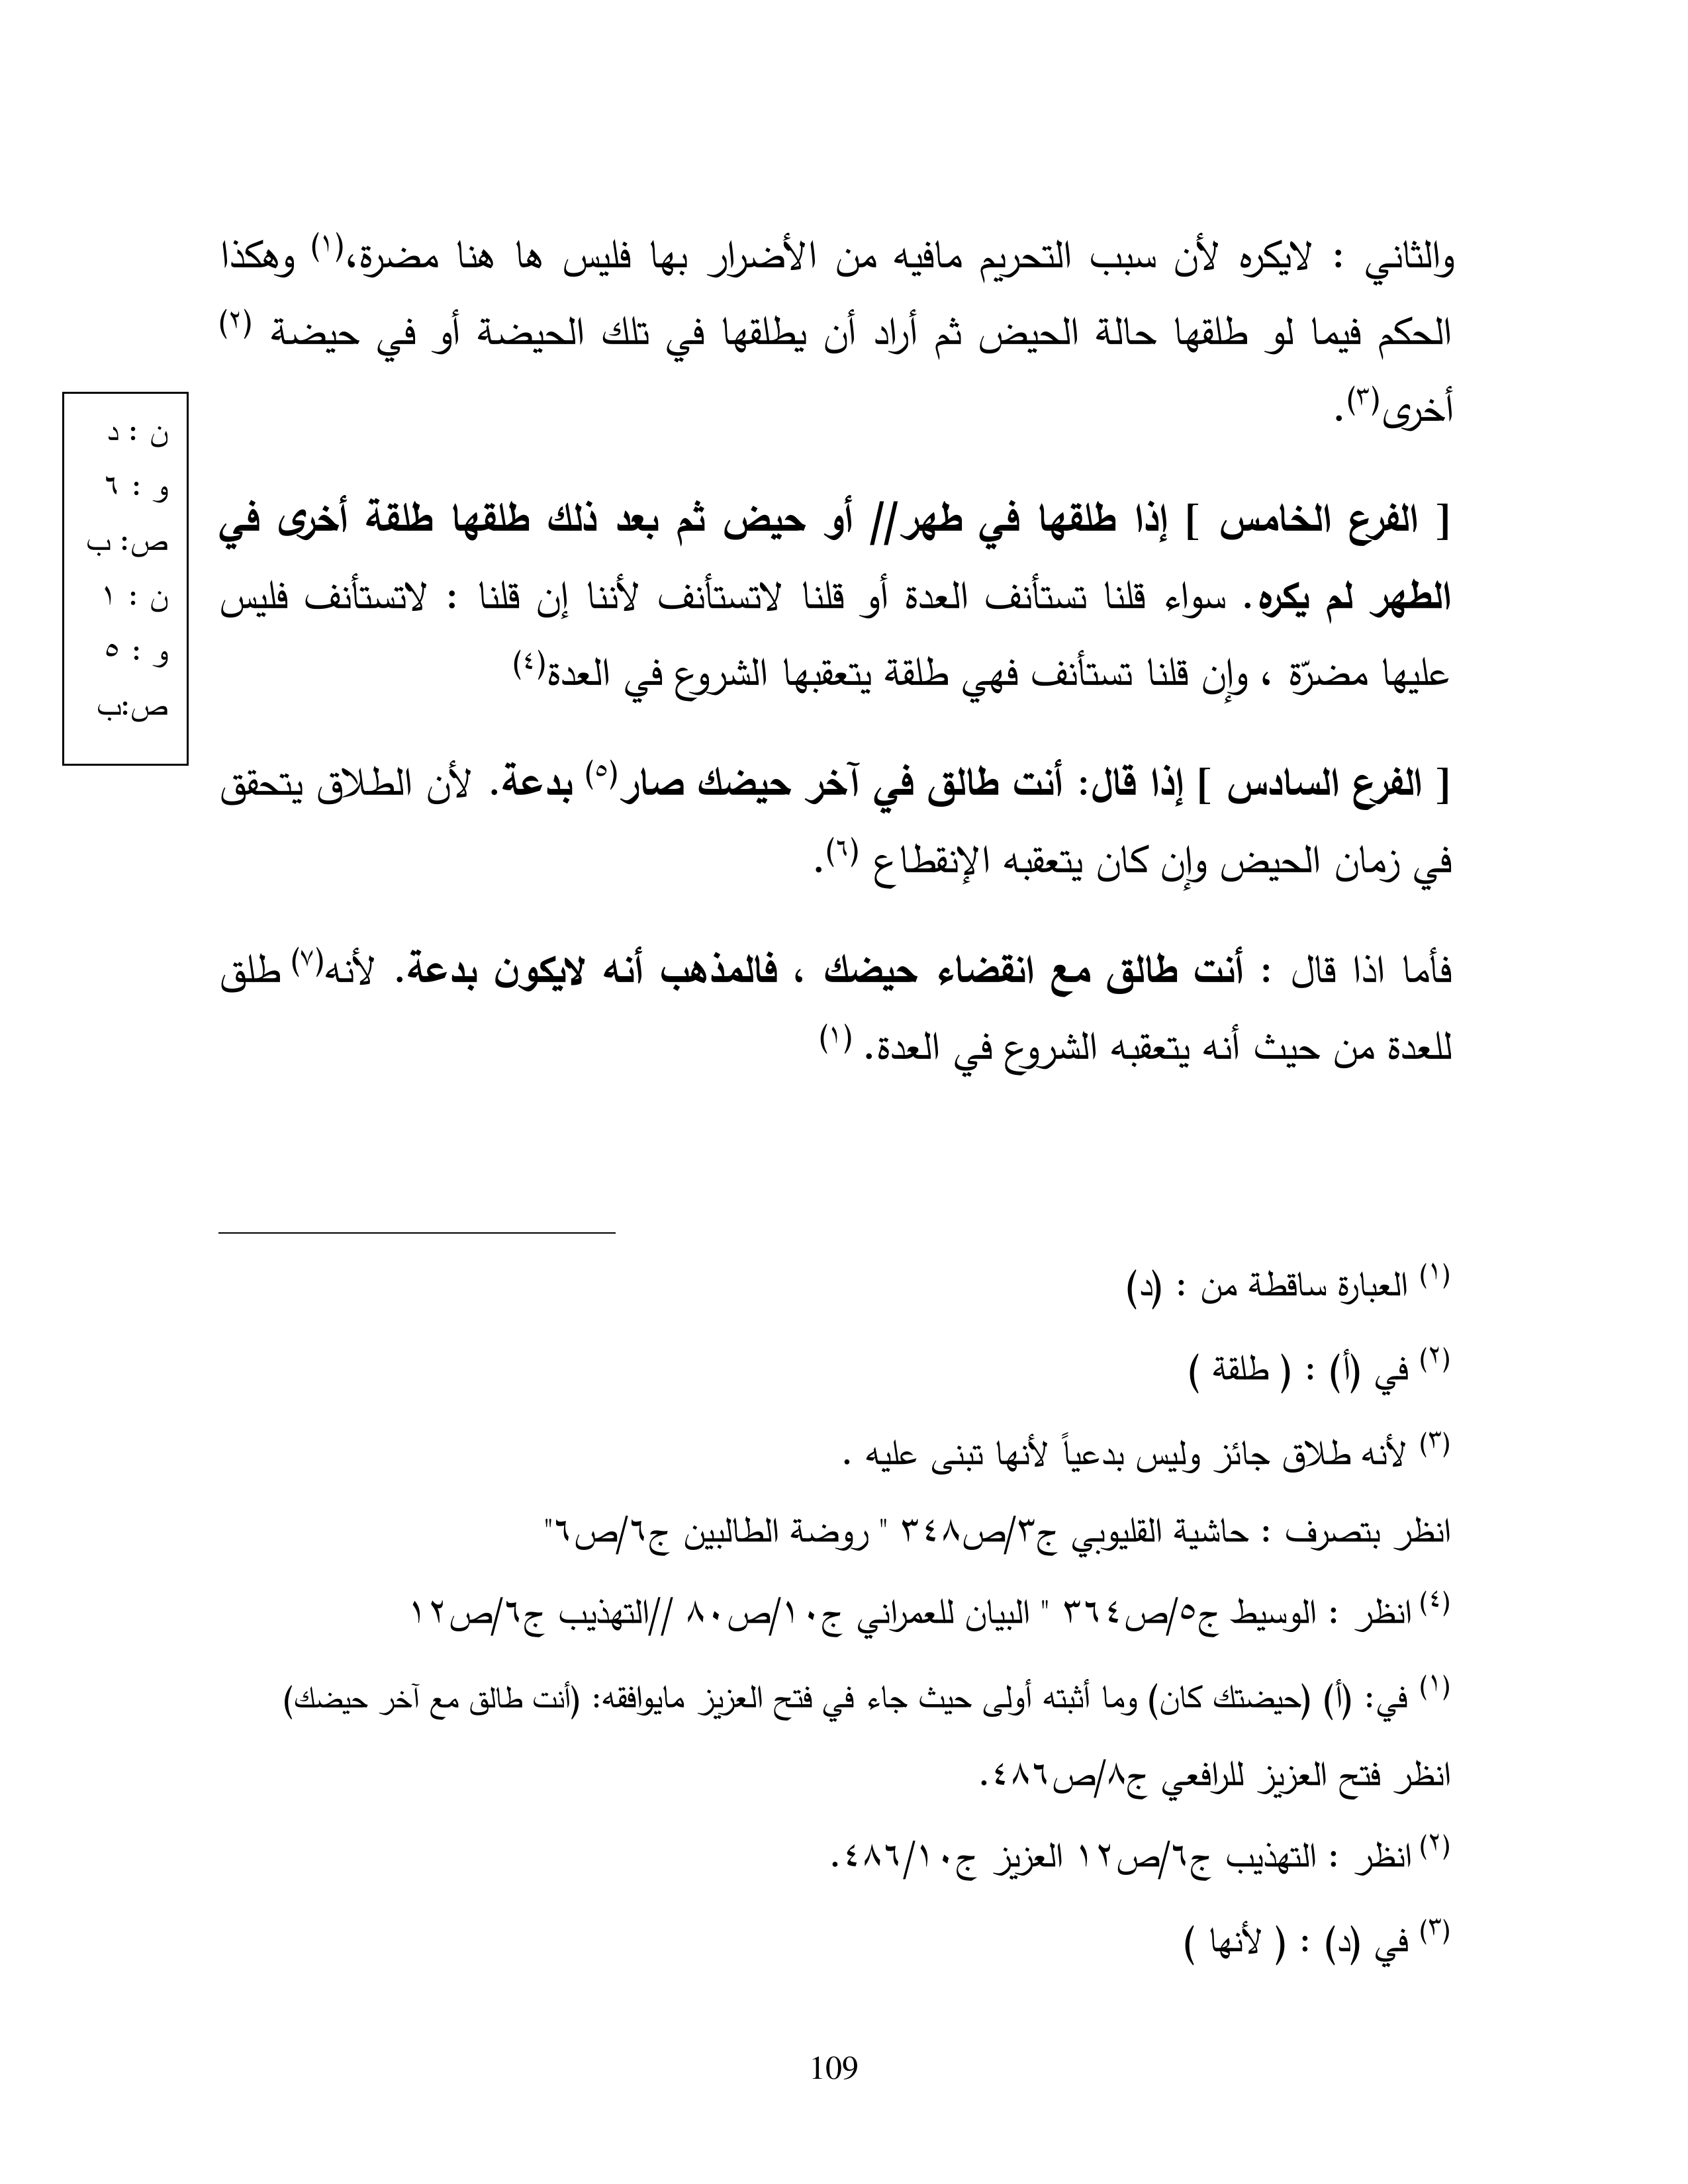 والثاني : لايكره لأن سبب التحريم مافيه من الأضرار بها فليس ها هنا مضرة،(١) وهكذا
الحكم فيما لو طلقها حالة الحيض ثم أراد أن يطلقها في تلك الحيضة أو في حيضة (٢)
أخرى(٣).
ن : د
و : ٦
ص: ب
ن : ١
و : ٥
ص:ب
[ الفرع الخامس ] إذا طلقها في طهر// أو حيض ثم بعد ذلك طلقها طلقة أخرى في
الطهر لم يكره. سواء قلنا تستأنف العدة أو قلنا لاتستأنف لأننا إن قلنا : لاتستأنف فليس
عليها مضرّة ، وإن قلنا تستأنف فهي طلقة يتعقبها الشروع في العدة(٤)
[ الفرع السادس ] إذا قال: أنت طالق في آخر حيضك صار(٥) بدعة. لأن الطلاق يتحقق
في زمان الحيض وإن كان يتعقبه الإنقطاع (٦).
فأما اذا قال : أنت طالق مع انقضاء حيضك ، فالمذهب أنه لايكون بدعة. لأنه(٧) طلق
للعدة من حيث أنه يتعقبه الشروع في العدة. (١)
(١) العبارة ساقطة من : (د)
(٢) في (أ) : ( طلقة )
(٣) لأنه طلاق جائز وليس بدعياً لأنها تبنى عليه .
انظر بتصرف : حاشية القليوبي ج٣/ص٣٤٨ " روضة الطالبين ج٦/ص٦"
(٤) انظر : الوسيط ج٥/ص٣٦٤ " البيان للعمراني ج١٠/ص٨٠ //التهذيب ج٦/ص١٢
(١) في: (أ) (حيضتك كان) وما أثبته أولى حيث جاء في فتح العزيز مايوافقه: (أنت طالق مع آخر حيضك)
انظر فتح العزيز للرافعي ج٨/ص٤٨٦.
(٢) انظر : التهذيب ج٦/ص١٢ العزيز ج٤٨٦/١٠.
(٣) في (د) : ( لأنها )
109